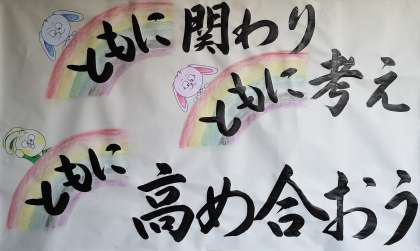 ともに関わり
ともに考え
ともに高め合おう